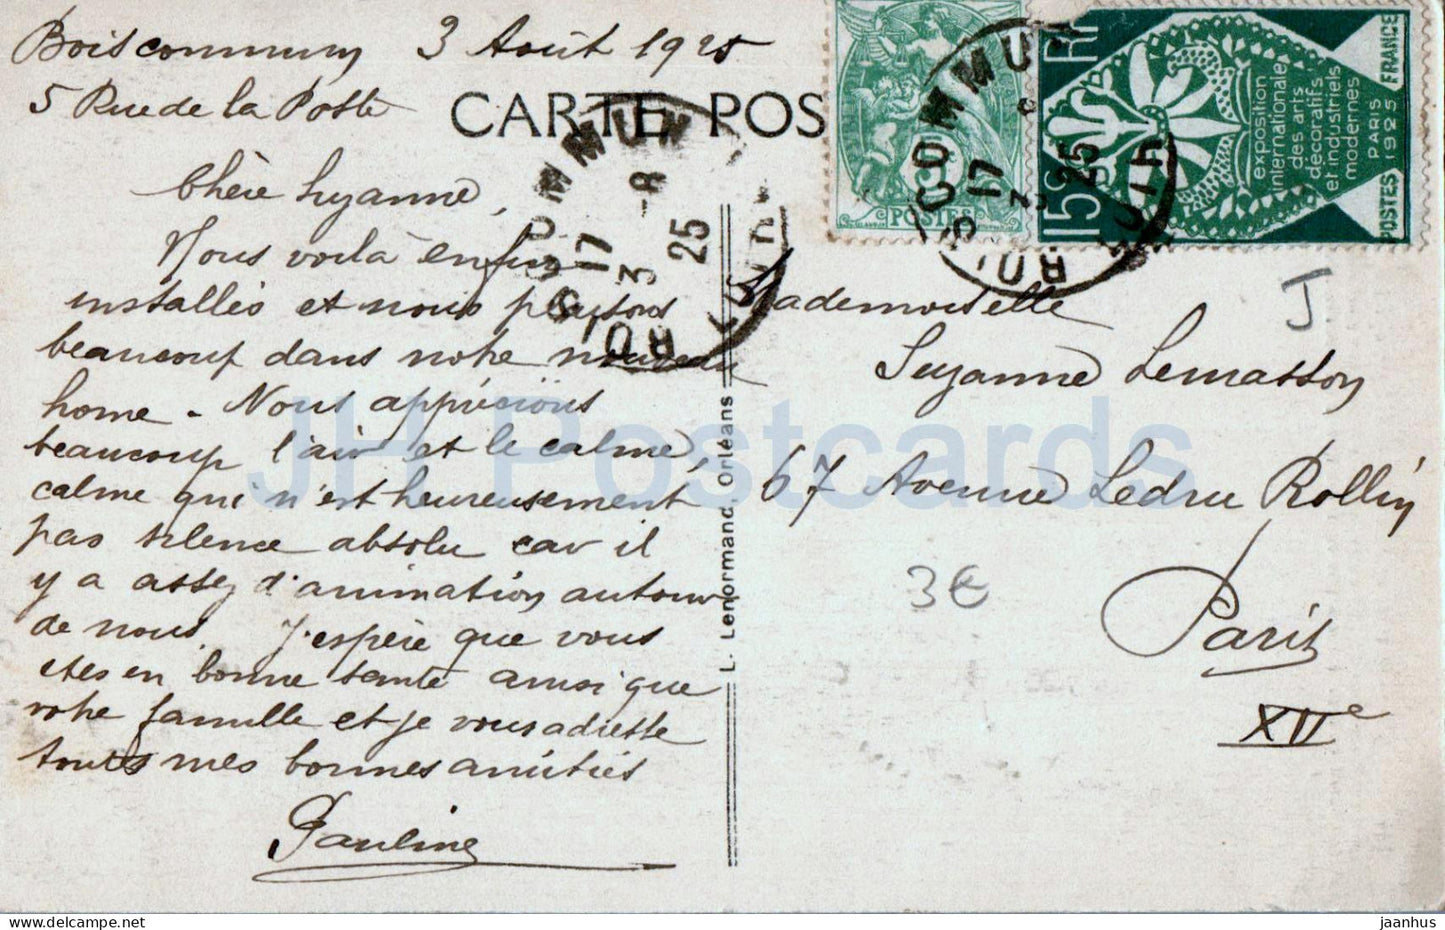 Boiscommun 3 Août 1925
5 Rue de la Poste
CARTE POS
Chère Suzanne,
Nous voilà enfin
installés et nous plaisons
beaucoup dans notre nouveau
home - Nous apprécions
beaucoup l'air et le calme,
calme qui n'est heureusement
pas silence absolu car il
y a assez d'animation autour
de nous. J'espère que vous
etes en bonne santé ainsi que
votre famille et je vous adresse
toutes mes bonnes amitiés
Pauline
L. Lenormand. Orléans
Mademoiselle
Suzanne Lemasson
67 Avenue Ledru Rollin
Paris
XIIe
J
3€
BOISCOMMUN
17
3 -8
25
LOIRET
BOISCOMMUN
17
3 8
25
LOIRET
5c
POSTES
RF
15c
exposition
internationale
des arts
décoratifs
et industriels
modernes
PARIS
POSTES 1925 FRANCE
JH Postcards
delcampe.net
jaanhus